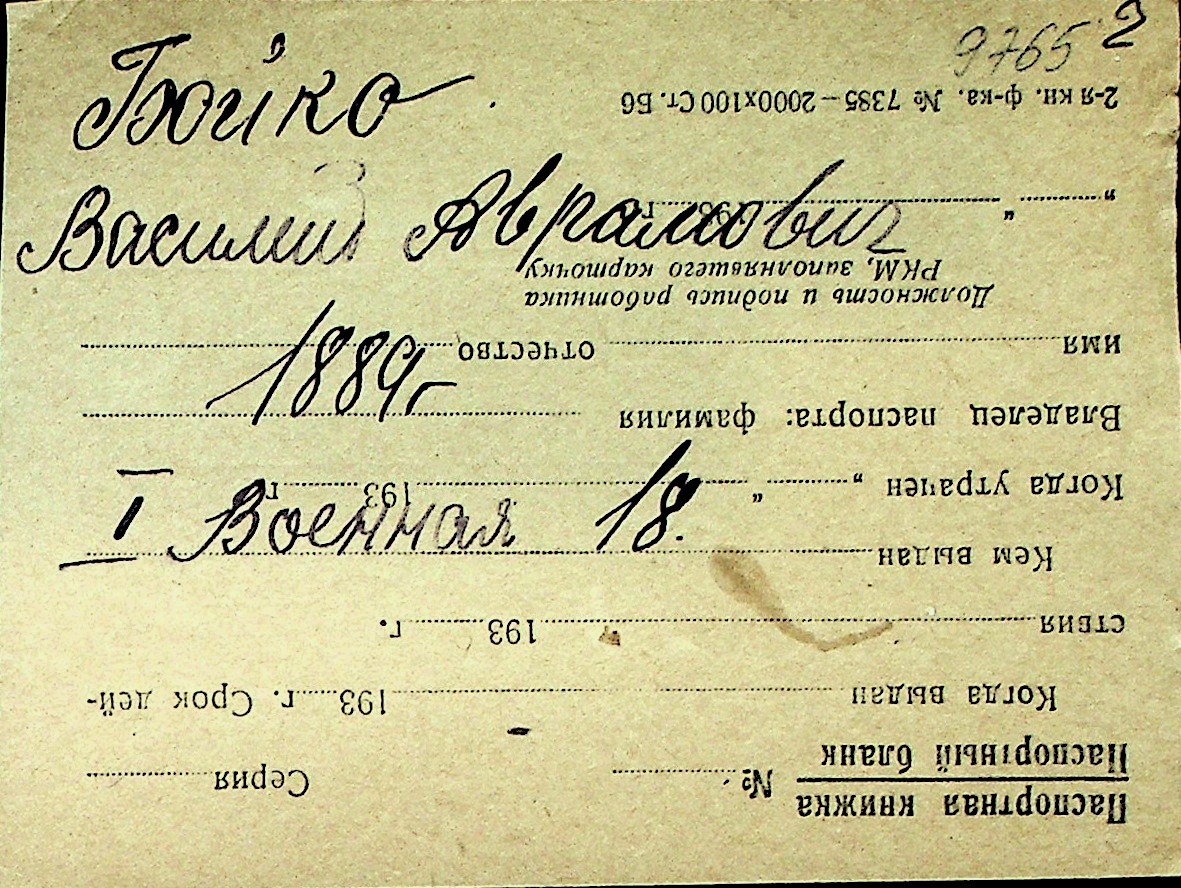 9765 2
Бойко
Василий Аврамович
1889г
I Военная 18.
Паспортная книжка
Паспортный бланк № Серия
Когда выдан 193 г. Срок дей-
ствия 193 г.
Кем выдан
Когда утрачен „ “ 193 г.
Владелец паспорта: фамилия
имя отчество
Должность и подпись работника
РКМ, заполнявшего карточку
„ “ 193 г.
2-я кн. ф-ка. № 7385 — 2000х100 Ст. Б6